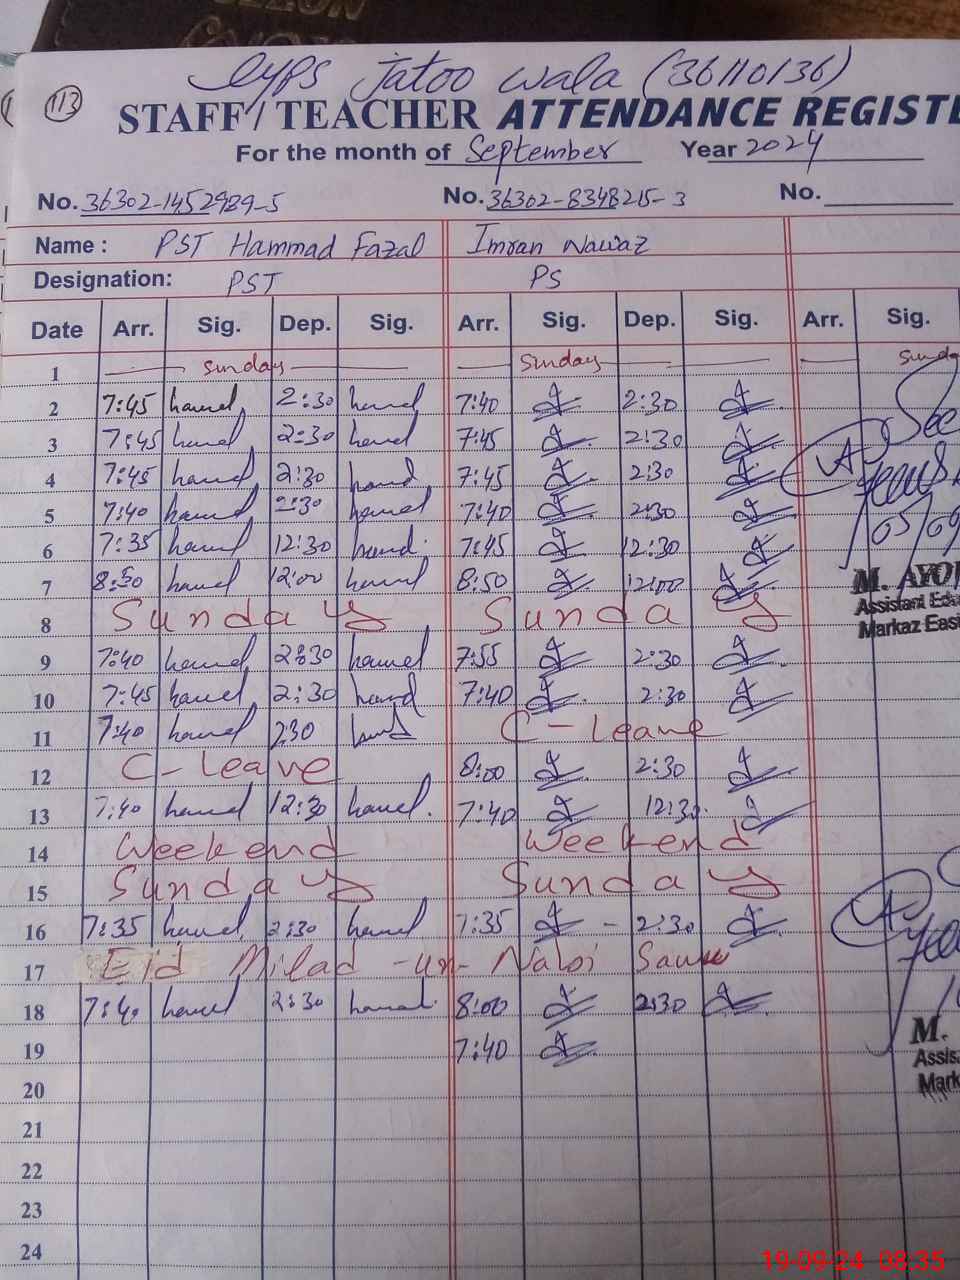 113
GGPS Jatoo Wala (36110136)
STAFF/TEACHER ATTENDANCE REGISTE
For the month of September Year 2024
No. 36302-1452989-5 No. 36302-8348215-3 No.
Name : PST Hammad Fazal Imran Nawaz
Designation: PST PS
Date Arr. Sig. Dep. Sig. Arr. Sig. Dep. Sig. Arr. Sig.
1 Sunday Sunday Sunda
2 7:45 hamd 2:30 hamd 7:40 2:30
See
3 7:45 hamd 2:30 hamd 7:45 2:30
4 7:45 hamd 2:30 hamd 7:45 2:30
5 7:40 hamd 2:30 hamd 7:40 2:30
05/09
6 7:35 hamd 12:30 hamd 7:45 12:30
7 8:50 hamd 12:00 hamd 8:50 12:00
M. AYO
Assistant Edu
Markaz East
8 Sunday Sunday
9 7:40 hamd 2:30 hamd 7:55 2:30
10 7:45 hamd 2:30 hamd 7:40 2:30
11 7:40 hamd 2:30 hamd C-Leave
12 C-Leave 8:00 2:30
13 7:40 hamd 12:30 hamd 7:40 12:30
14 Weekend Weekend
15 Sunday Sunday
16 7:35 hamd 2:30 hamd 7:35 - 2:30
17 Eid Milad-un-Nabi Saww
18 7:40 hamd 2:30 hamd 8:00 2:30
19 7:40
M.
Assis
Mark
20
21
22
23
24
19-09-24 08:35